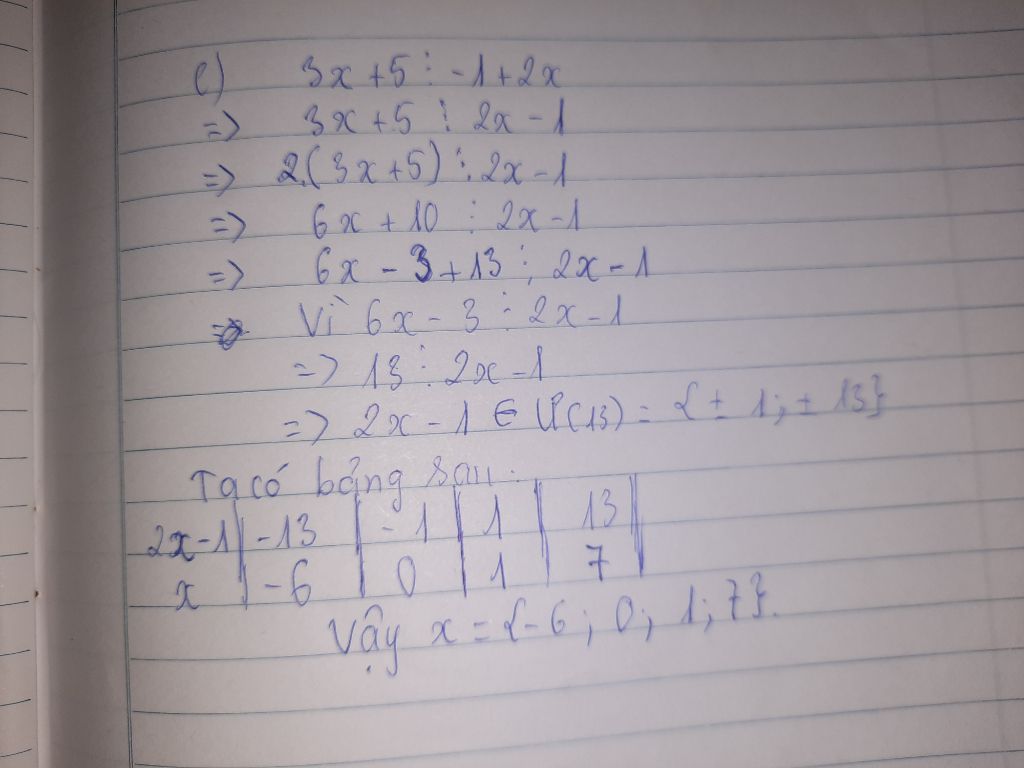 c) 3x + 5 ⋮ -1 + 2x
=> 3x + 5 ⋮ 2x - 1
=> 2.(3x + 5) ⋮ 2x - 1
=> 6x + 10 ⋮ 2x - 1
=> 6x - 3 + 13 ⋮ 2x - 1
Vì 6x - 3 ⋮ 2x - 1
=> 13 ⋮ 2x - 1
=> 2x - 1 ∈ Ư(13) = {± 1; ± 13}
Ta có bảng sau:
2x-1 | -13 | -1 | 1 | 13
x | -6 | 0 | 1 | 7
Vậy x = {-6; 0; 1; 7}.